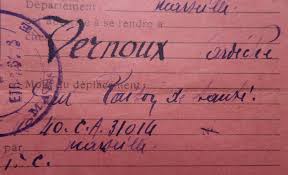 Département Marseille
à se rendre à
Vernoux Ardèche
Motif du déplacement
Pour Raison de santé.
40. C.A. 31014
par Marseille